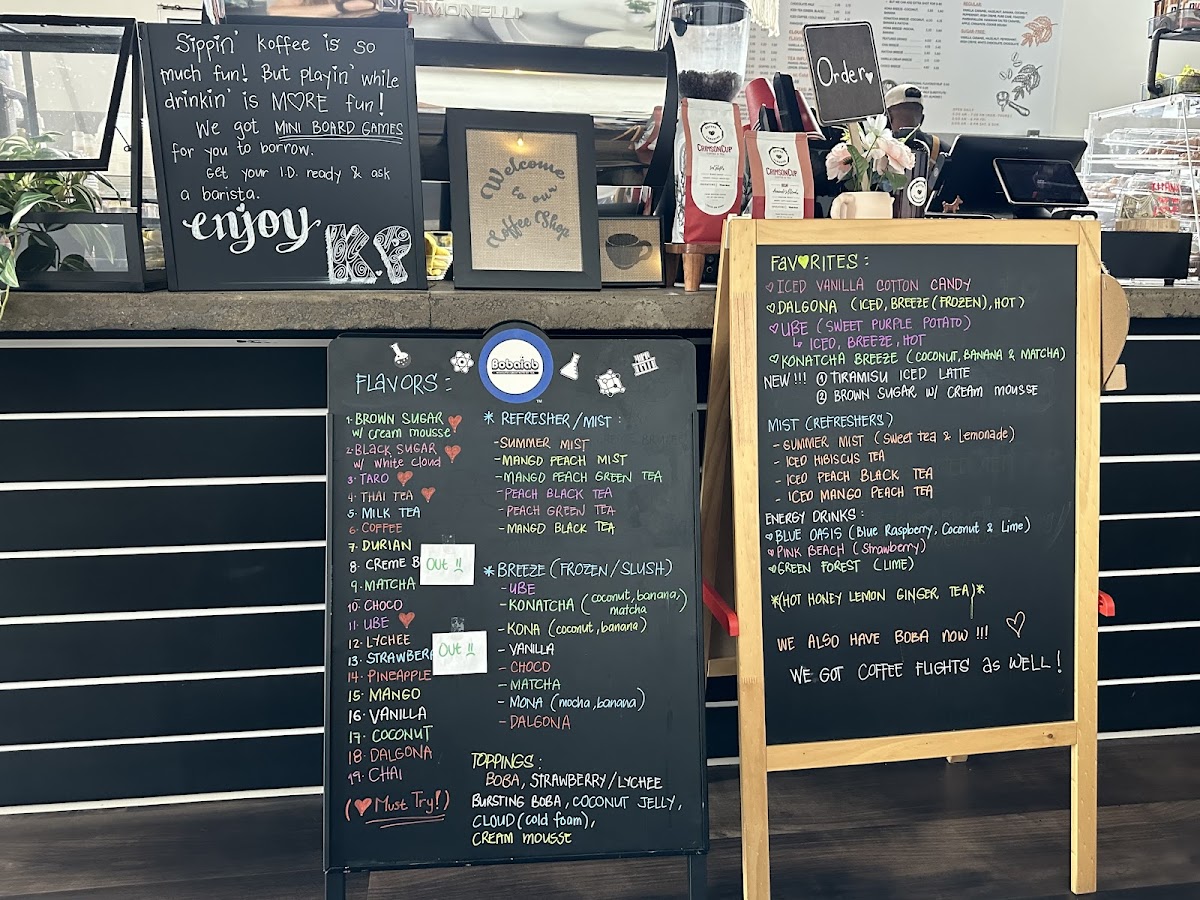 Sippin' koffee is so
much fun! But playin' while
drinkin' is MORE fun!
We got MINI BOARD GAMES
for you to borrow.
Get your I.D. ready & ask
a barista.
enjoy
K.P
SIMONELLI
Welcome
to our
Coffee Shop
CRIMSON CUP
CRIMSON CUP
Order
Bobalab
FLAVORS :
1. BROWN SUGAR
w/ cream mousse
2. BLACK SUGAR
w/ white cloud
3. TARO
4. THAI TEA
5. MILK TEA
6. COFFEE
7. DURIAN
8. CREME B
OUT !!
9. MATCHA
10. CHOCO
11. UBE
12. LYCHEE
13. STRAWBER
OUT !!
14. PINEAPPLE
15. MANGO
16. VANILLA
17. COCONUT
18. DALGONA
19. CHAI
( Must Try! )
* REFRESHER / MIST :
- SUMMER MIST
- MANGO PEACH MIST
- MANGO PEACH GREEN TEA
- PEACH BLACK TEA
- PEACH GREEN TEA
- MANGO BLACK TEA
* BREEZE (FROZEN / SLUSH)
- UBE
- KONATCHA (coconut, banana,
matcha)
- KONA (coconut, banana)
- VANILLA
- CHOCO
- MATCHA
- MONA (mocha, banana)
- DALGONA
TOPPINGS :
BOBA, STRAWBERRY / LYCHEE
BURSTING BOBA, COCONUT JELLY,
CLOUD (cold foam),
CREAM MOUSSE
FAVORITES :
ICED VANILLA COTTON CANDY
DALGONA (ICED, BREEZE (FROZEN), HOT)
UBE (SWEET PURPLE POTATO)
ICED, BREEZE, HOT
KONATCHA BREEZE (COCONUT, BANANA & MATCHA)
NEW!!! ① TIRAMISU ICED LATTE
② BROWN SUGAR W/ CREAM MOUSSE
MIST (REFRESHERS)
- SUMMER MIST (Sweet tea & Lemonade)
- ICED HIBISCUS TEA
- ICED PEACH BLACK TEA
- ICED MANGO PEACH TEA
ENERGY DRINKS :
BLUE OASIS (Blue Raspberry, Coconut & Lime)
PINK BEACH (Strawberry)
GREEN FOREST (LIME)
*(HOT HONEY LEMON GINGER TEA)*
WE ALSO HAVE BOBA NOW !!!
WE GOT COFFEE FLIGHTS as WELL!